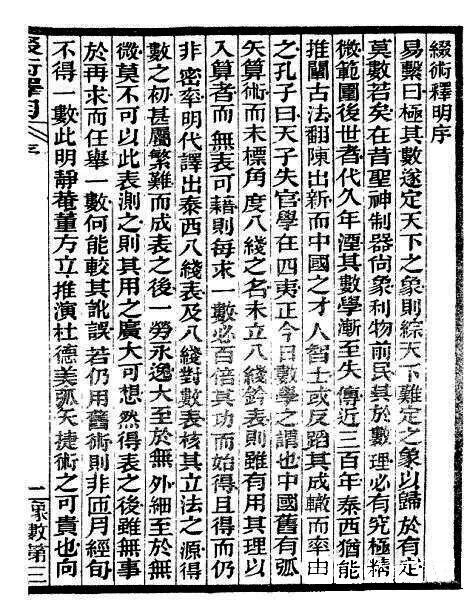 綴術釋明序
易繫曰極其數遂定天下之象則綜天下難定之象以歸於有定
莫數若矣在昔聖神制器尚象利物前民其於數理必有究極精
微範圍後世者代久年湮其數學漸至失傳近三百年泰西猶能
推闡古法翻陳出新而中國之才人智士或反蹈其成轍而率由
之孔子曰天子失官學在四夷正今日數學之謂也中國舊有弧
矢算術而未標角度八綫之名未立八綫鈐表則雖有用其理以
入算者而無表可藉則每求一數必百倍其功而始得且得而仍
非密率明代譯出泰西八綫表及八綫對數表核其立法之源得
數之初甚屬繁難而成表之後一勞永逸大至於無外細至於無
微莫不可以此表測之則其用之廣大可想然得表之後雖無事
於再求而任舉一數何能較其訛誤若仍用舊術則非匝月經旬
不得一數此明靜菴董方立推演杜德美弧矢捷術之可貴也向
綴術釋明
序
一
象數第三